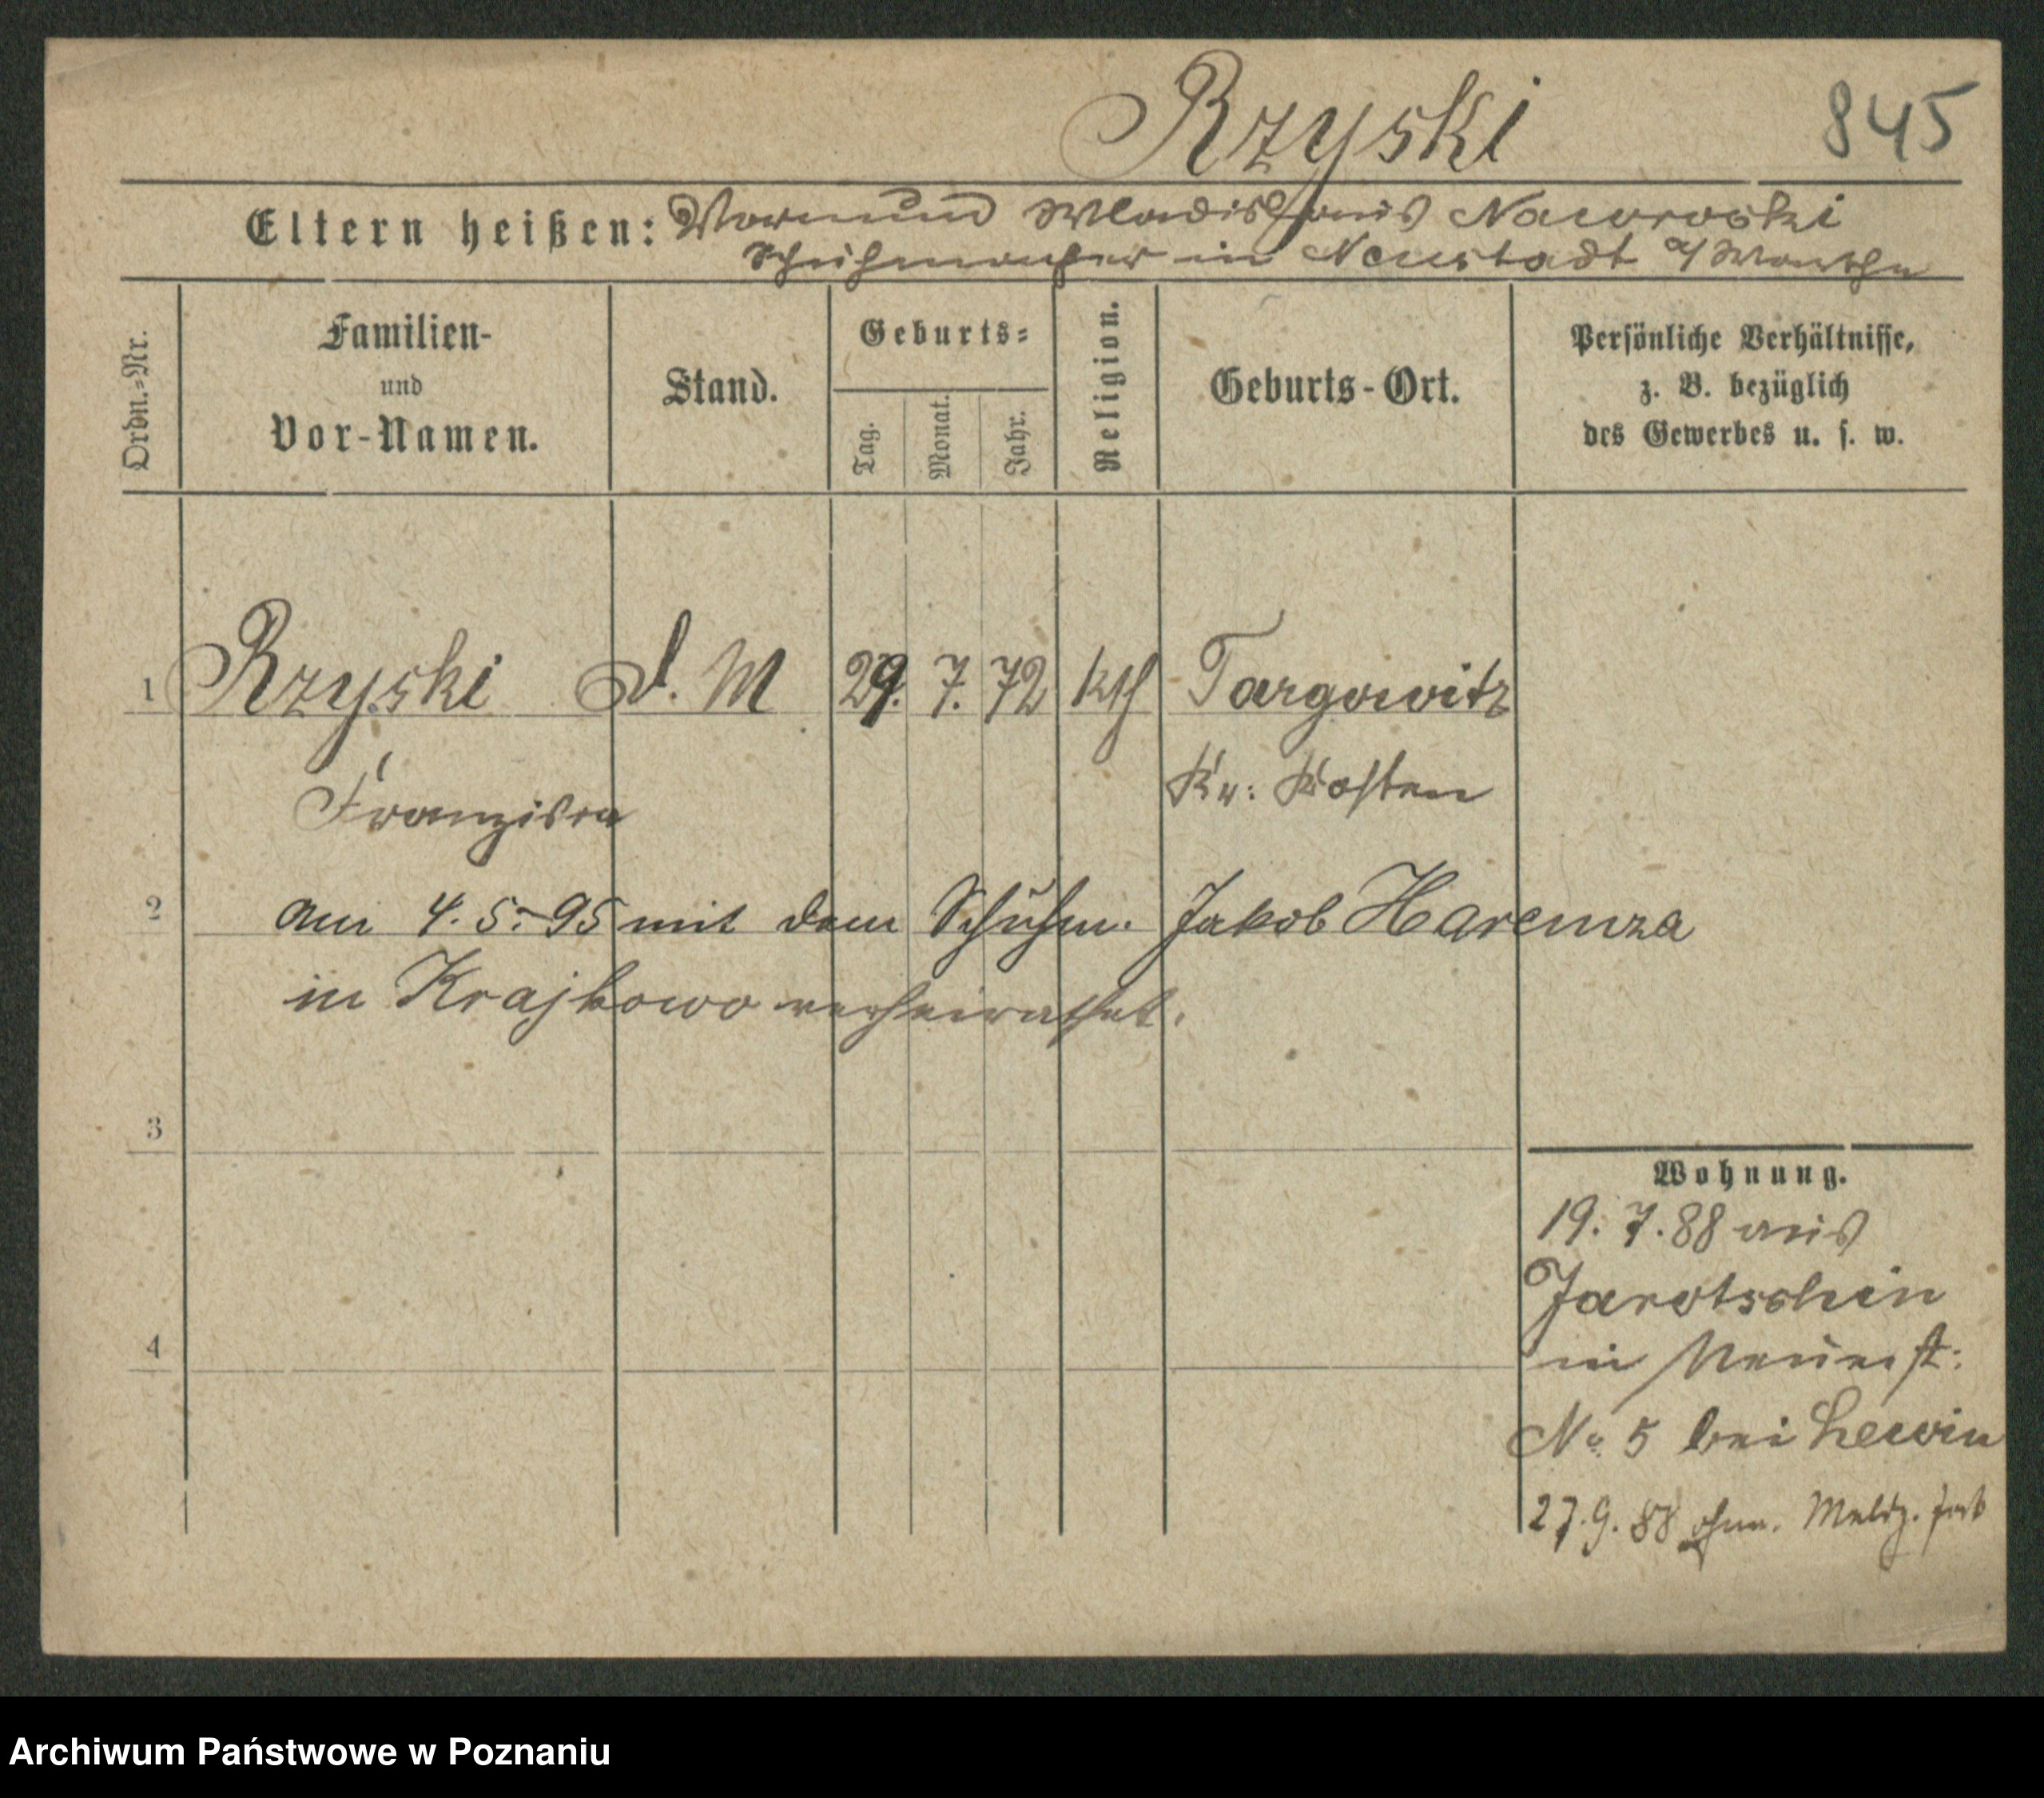 Rzyski 845
Eltern heißen: Vormund Wladislaus Naworoski
Schuhmacher in Neustadt a/Warthe
Ordn.-Nr.
Familien-
und
Vor-Namen.
Stand.
Geburts-
Tag.
Monat.
Jahr.
Religion.
Geburts-Ort.
Persönliche Verhältnisse,
z. B. bezüglich
des Gewerbes u. s. w.
1 Rzyski d. M 29. 7. 72 kth Targowitz
Franziska Kr: Kosten
2 am 4. 5. 95 mit dem Schuhm. Jakob Haremza
in Krajkowo verheirathet.
3
Wohnung.
19. 7. 88 aus
Jarotschin
4
in Neuest:
No 5 bei Lewin
27. 9. 88 ohne
Archiwum Państwowe w Poznaniu